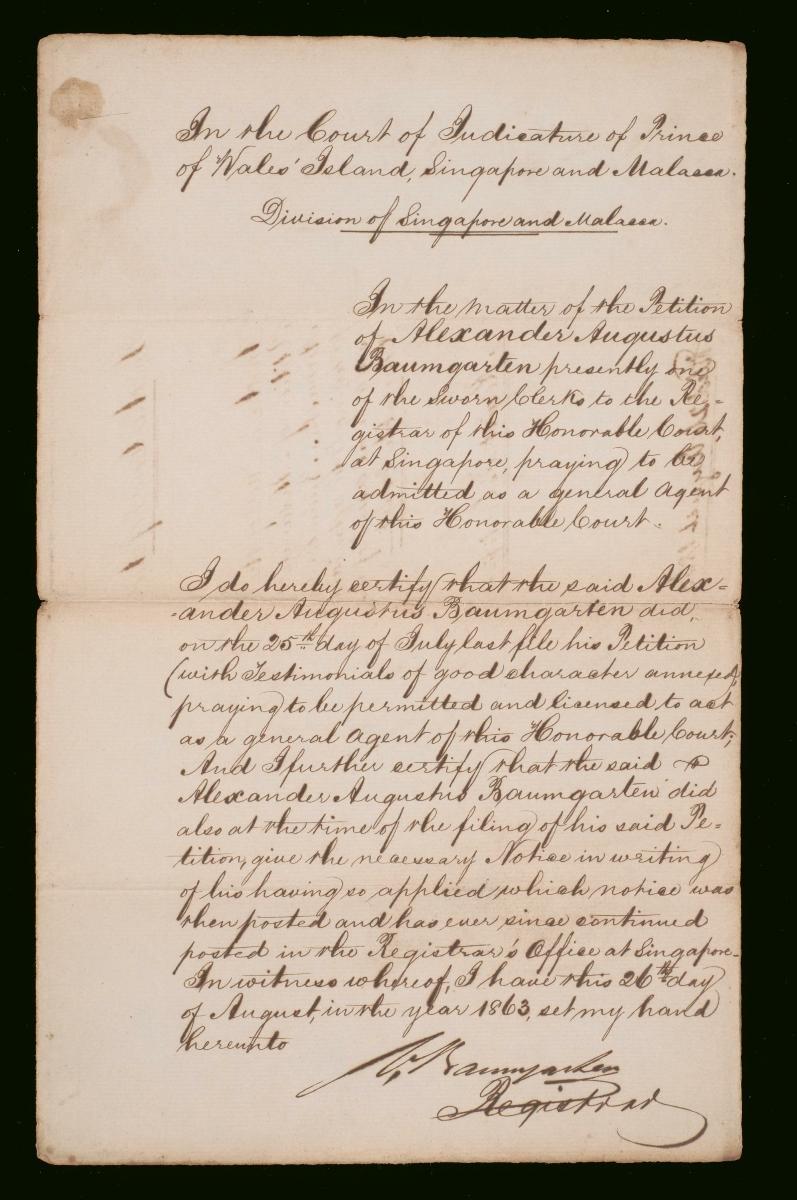 In the Court of Judicature of Prince
of Wales' Island, Singapore and Malacca.
Division of Singapore and Malacca.
In the matter of the Petition
of Alexander Augustus
Baumgarten presently one
of the Sworn Clerks to the Re-
gistrar of this Honorable Court,
at Singapore, praying to be
admitted as a general Agent
of this Honorable Court.
I do hereby certify that the said Alex-
-ander Augustus Baumgarten did,
on the 25th day of July last file his Petition
(with Testimonials of good character annexed)
praying to be permitted and licensed to act
as a general Agent of this Honorable Court;
And I further certify that the said
Alexander Augustus Baumgarten did
also at the time of the filing of his said Pe-
tition, give the necessary Notice in writing
of his having so applied which notice was
then posted and has ever since continued
posted in the Registrar's Office at Singapore.
In witness whereof, I have this 26th day
of August, in the year 1863, set my hand
hereunto
Baumgarten
Registrar